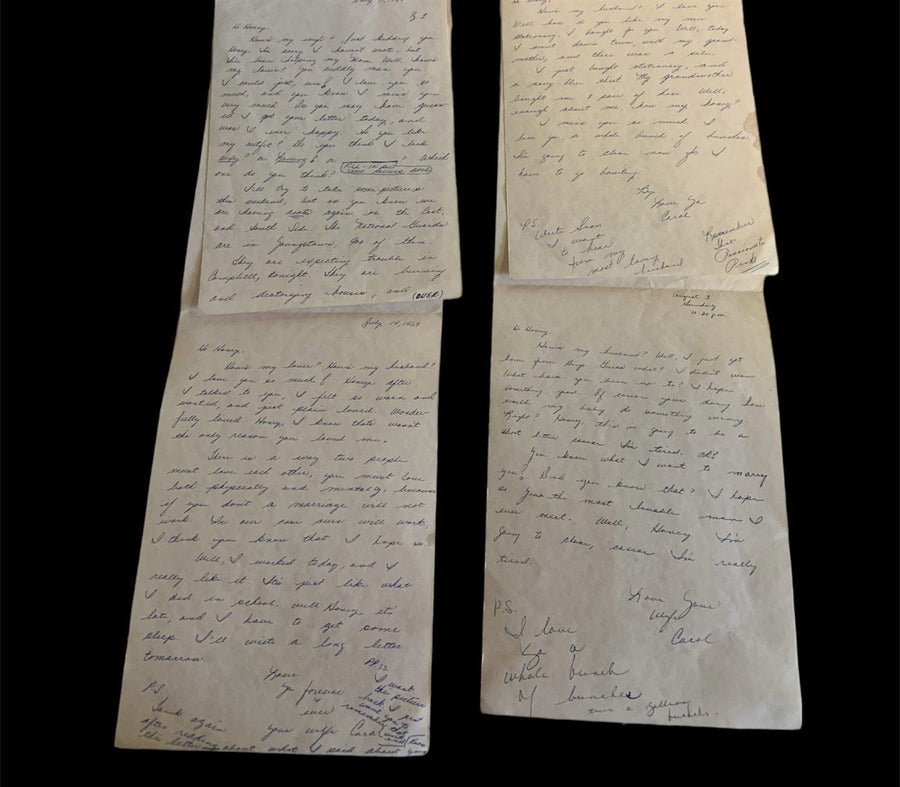 Hi Honey,
How's my wife? Just kidding you
Honey. I'm sorry I haven't wrote, but
I've been helping my Mom. Well, how's
my lover? You cuddly man you.
I could just, umg! I love you so
much, and you know I miss you
very much. As you may have guess-
ed I got your letter today, and
was I ever happy. So you like
my outfit? Do you think I look
sexy? or ? or ? Which
one do you think?
I'll try to take some pictures
this weekend, but as you know we
are having riots again on the East,
and South Side. The National Guards
are in Youngstown, of them.
They are expecting trouble in
Campbell, tonight. They are burning
and destroying houses, and (OVER)
July 14, 1969
Hi Honey,
How's my lover? How's my husband?
I love you so much! Honey after
I talked to you, I felt so warm and
wanted, and just plain loved. Wonder-
fully loved. Honey, I know thats wasn't
the only reason you loved me.
There is a way two people
must love each other, you must love
both physically and mentally, because
if you don't a marriage will not
work. In our case ours will work,
I think you know that. I hope so.
Well, I worked today, and I
really like it. It's just like what
I did in school. Well Honey, it's
late, and I have to get some
sleep. I'll write a long letter
tomorrow.
Love
Ya forever
ever
your wife Carol
P.S.
Think again
after reading
this letter about what I said about
PP.SS.
I want
the picture
back I
want you to
remember
that
How's my husband? I love you
Well, how do you like my new
stationary, I bought for you. Well, today
I went down town, with my grand-
mother, and there was a sale.
I just bought stationary, and
a navy blue skirt. My grandmother
bought me 2 pair of hose. Well,
enough about me, how my honey?
I miss you so much. I
love ya, a whole bunch of bunches.
I'm going to close now for I
have to go bowling.
Bye
Love Ya
Carol
P.S.
Write Soon
I want
to hear
from my
most loving
husband
Remember
that
Passionate
Pink
August 3
Sunday
11:20 p.m.
Hi Honey,
How's my husband? Well, I just got
home from Bingo. Guess what? I didn't won.
What have you been up to? I hope
something good. Of course your doing, how
could my baby do something wrong.
Right? Honey, this is going to be a
short letter cause I'm tired. Ok?
You know what I want to marry
you? Did you know that? I hope
so your the most lovable man I
ever met. Well, Honey I'm
going to close, cause I'm really
tired.
Love Your
Wife
Carol
P.S.
I love
Ya a
whole bunch
of bunches
bunches.